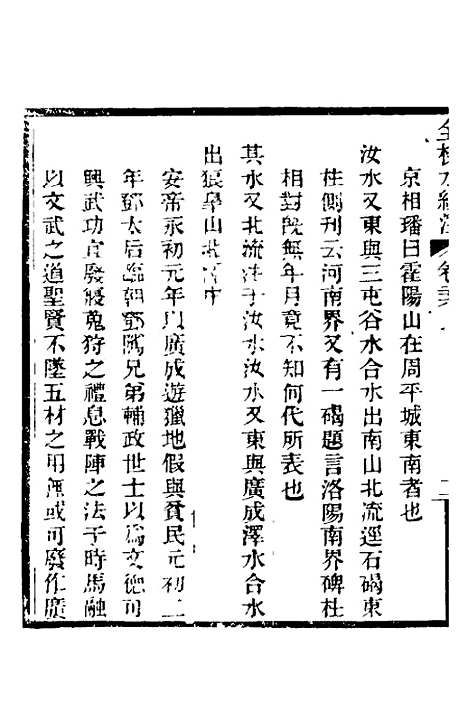 全校水經注 卷 二
京相璠曰霍陽山在周平城東南者也
汝水又東與三屯谷水合水出南山北流逕石碣東
柱側刊云河南界又有一碣題言洛陽南界碑柱
相對既無年月竟不知何代所表也
其水又北流注于汝水汝水又東與廣成澤水合水
出狼皐山北澤中
安帝永初元年以廣成遊獵地假與貧民元初二
年鄧太后臨朝鄧隲兄弟輔政世士以爲文德可
興武功宜廢寢蒐狩之禮息戰陣之法于時馬融
以文武之道聖賢不墜五材之用無或可廢作廣